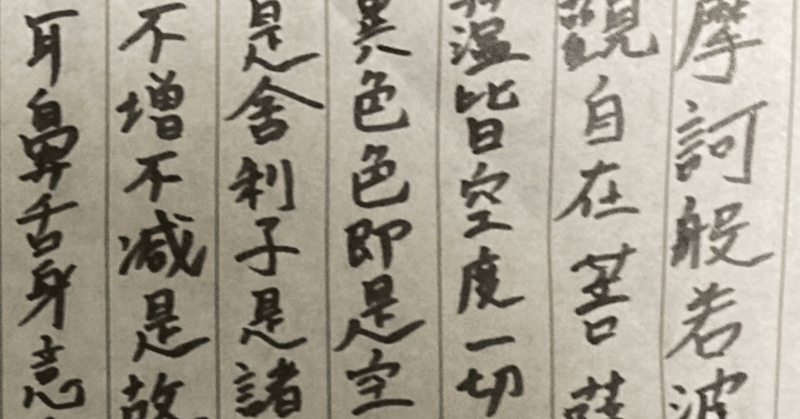 摩訶般若波
觀自在菩薩
蘊皆空度一切
異色色即是空
是舍利子是諸
不増不減是故
耳鼻舌身意